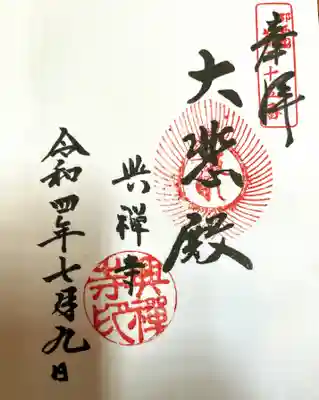 奉拝
大悲殿
興禅寺
令和四年七月九日
興禅
寺印